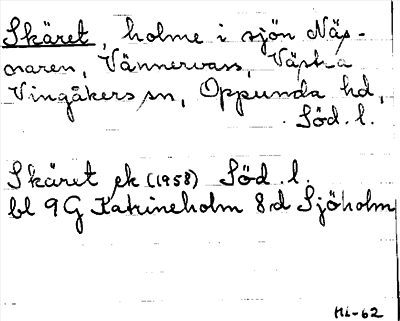 Skäret, holme i sjön Näs-
naren, Vännevass, Västra
Vingåkers sn, Oppunda hd,
Söd. l.
Skäret ek (1958) Söd. l.
bl 9G Katrineholm 8:d Sjöholm
Hi-62